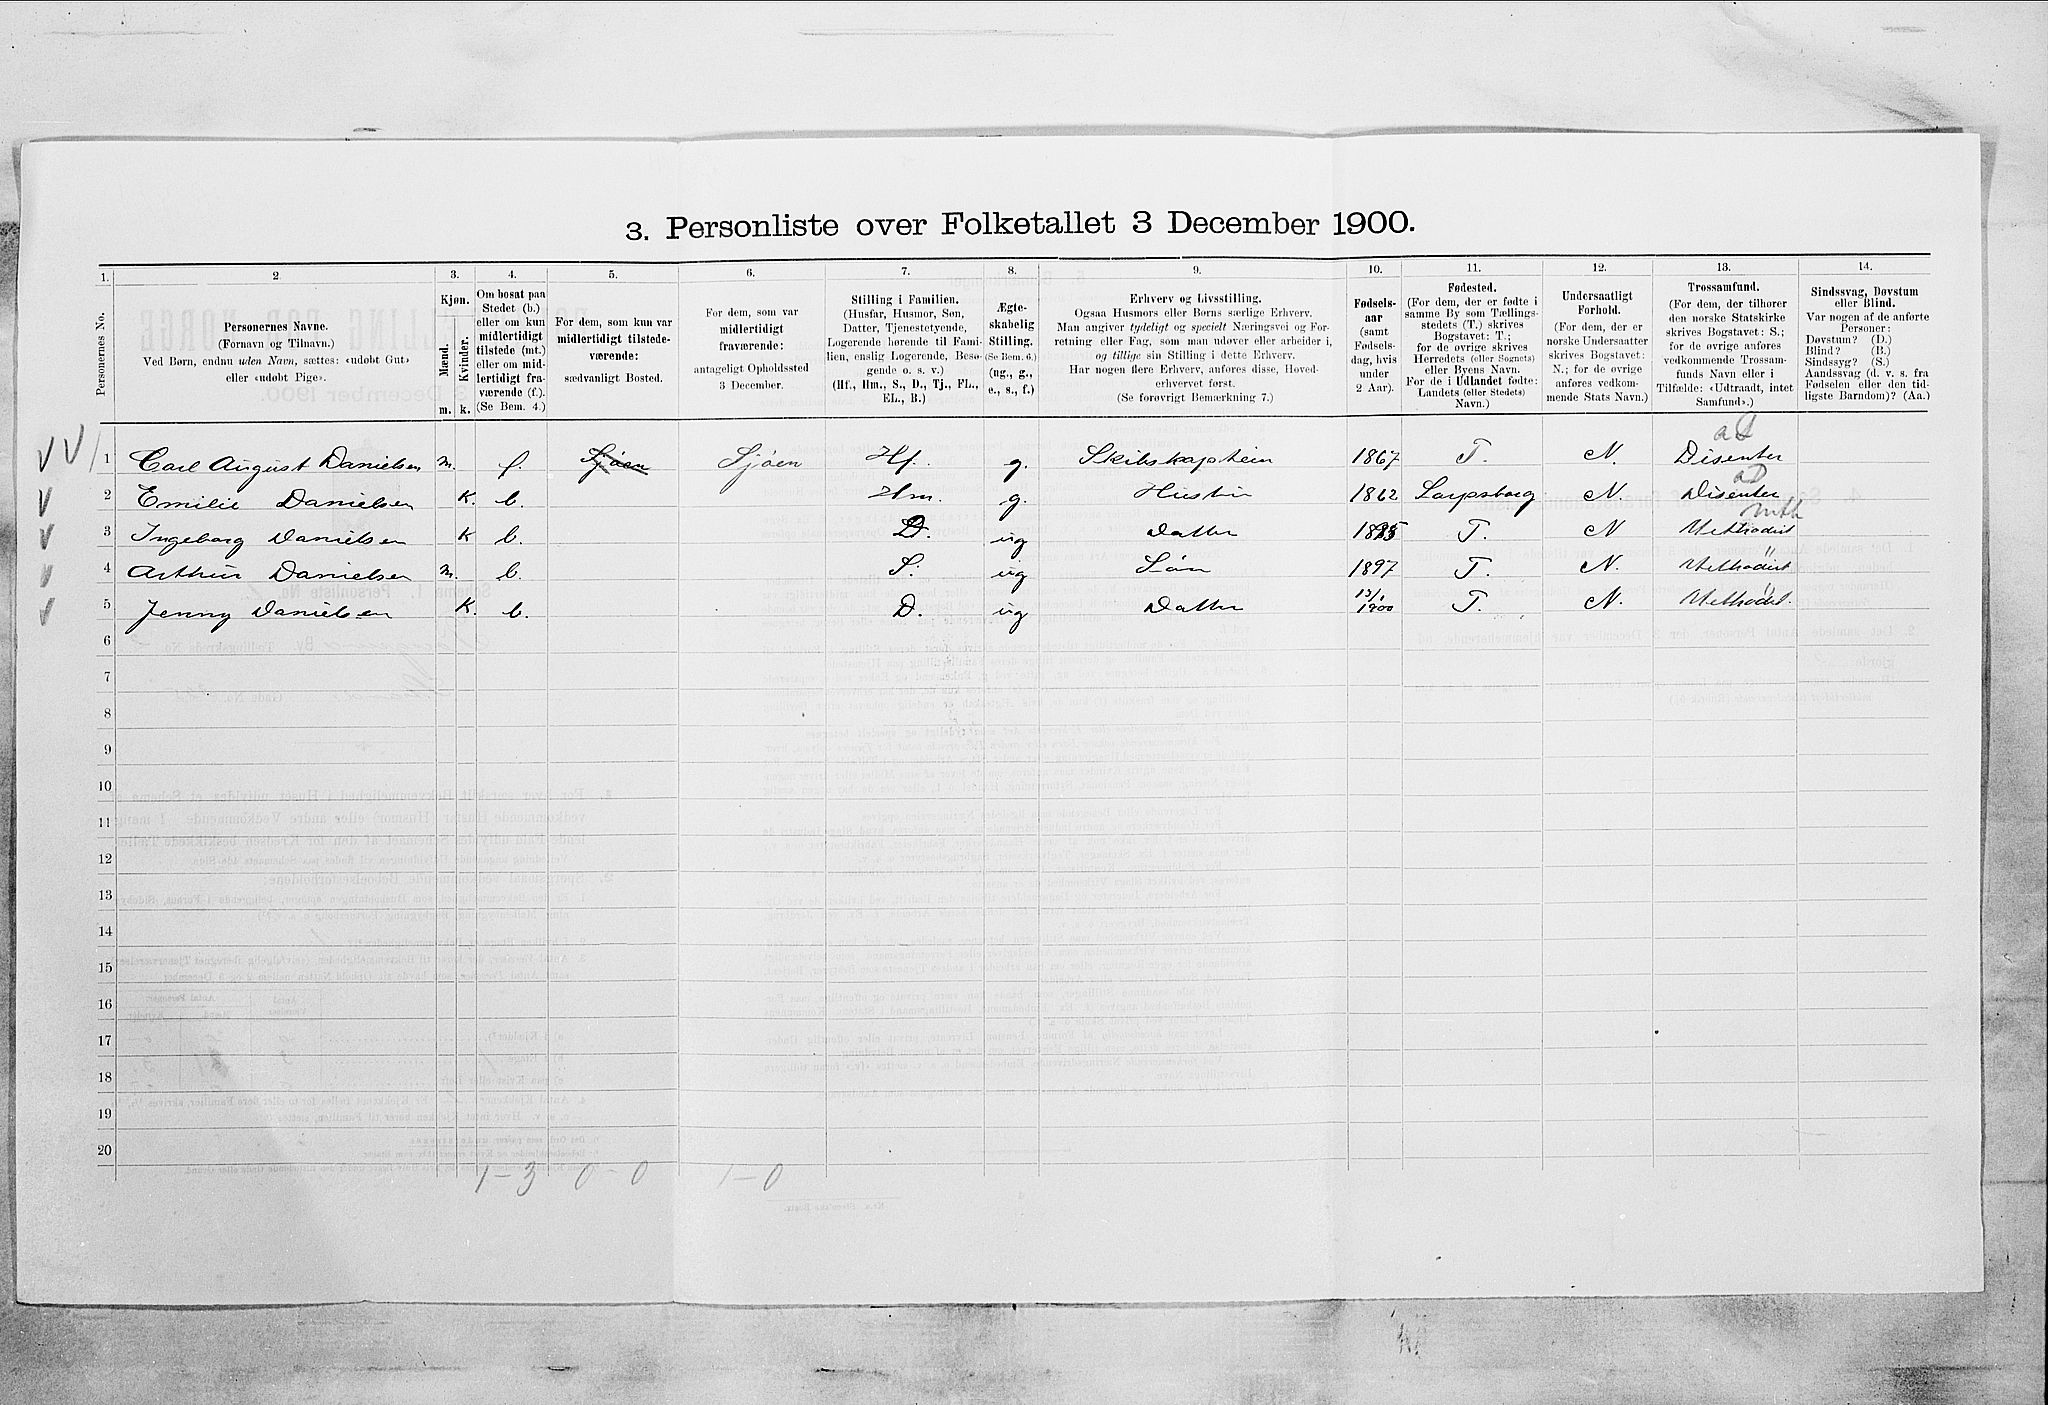 3. Personliste over Folketallet 3 December 1900.
1. 2. 3. 4. 5. 6. 7. 8. 9. 10. 11. 12. 13. 14.
Personernes No.
Personernes Navne.
(Fornavn og Tilnavn.)
Ved Børn, endnu uden Navn, sættes: «udøbt Gut»
eller «udøbt Pige».
Kjøn.
Mænd.
Kvinder.
m. k.
Om bosat paa
Stedet (b.)
eller om kun
midlertidigt
tilstede (mt.)
eller om mid-
lertidigt fra-
værende (f.).
(Se Bem. 4.)
For dem, som kun var
midlertidigt tilstede-
værende:
sædvanligt Bosted.
For dem, som var
midlertidigt
fraværende:
antageligt Opholdssted
3 December.
Stilling i Familien.
(Husfar, Husmor, Søn,
Datter, Tjenestetyende,
Logerende hørende til Fami-
lien, enslig Logerende, Besø-
gende o. s. v.)
(Hf., Hm., S., D., Tj., FL.,
EL., B.)
Ægte-
skabelig
Stilling.
(Se Bem. 6.)
(ug., g.,
e., s., f.)
Erhverv og Livsstilling.
Ogsaa Husmors eller Børns særlige Erhverv.
Man angiver tydeligt og specielt Næringsvei og For-
retning eller Fag, som man udøver eller arbeider i,
og tillige sin Stilling i dette Erhverv.
Har nogen flere Erhverv, anføres disse, Hoved-
erhvervet først.
(Se forøvrigt Bemærkning 7.)
Fødsels-
aar
(samt
Fødsels-
dag, hvis
under
2 Aar).
Fødested.
(For dem, der er fødte i
samme By som Tællings-
stedets (T.) skrives
Bogstavet: T.;
for de øvrige skrives
Herredets (eller Sognets)
eller Byens Navn.
For de i Udlandet fødte:
Landets (eller Stedets)
Navn.)
Undersaatligt
Forhold.
(For dem, der er
norske Undersaatter
skrives Bogstavet:
N.; for de øvrige
anføres vedkom-
mende Stats Navn.)
Trossamfund.
(For dem, der tilhører
den norske Statskirke
skrives Bogstavet: S.;
for de øvrige anføres
vedkommende Trossam-
funds Navn eller i
Tilfælde: «Udtraadt, intet
Samfund».)
Sindssvag, Døvstum
eller Blind.
Var nogen af de anførte
Personer:
Døvstum? (D.)
Blind? (B.)
Sindssyg? (S.)
Aandssvag (d. v. s. fra
Fødselen eller den tid-
ligste Barndom)? (Aa.)
1 Carl August Danielsen m. f. Sjøen Sjøen Hf. g. Skibskaptein 1867 T. N. Disenter
2 Emilie Danielsen K. b. Hm. g. Hustru 1862 Sarpsborg N. Disenter
3 Ingeborg Danielsen K b. D. ug Datter T. N Methodist
meth
4 Arthur Danielsen m. b. S. ug Søn 1897 T. N. Methodist
5 Jenny Danielsen K. b. D. ug Datter 13/1 1900 T. N. Methodist.
6
7
8
9
10
11
12
13
14
15
16
17
18
19
20
1-3 0-0 1-0